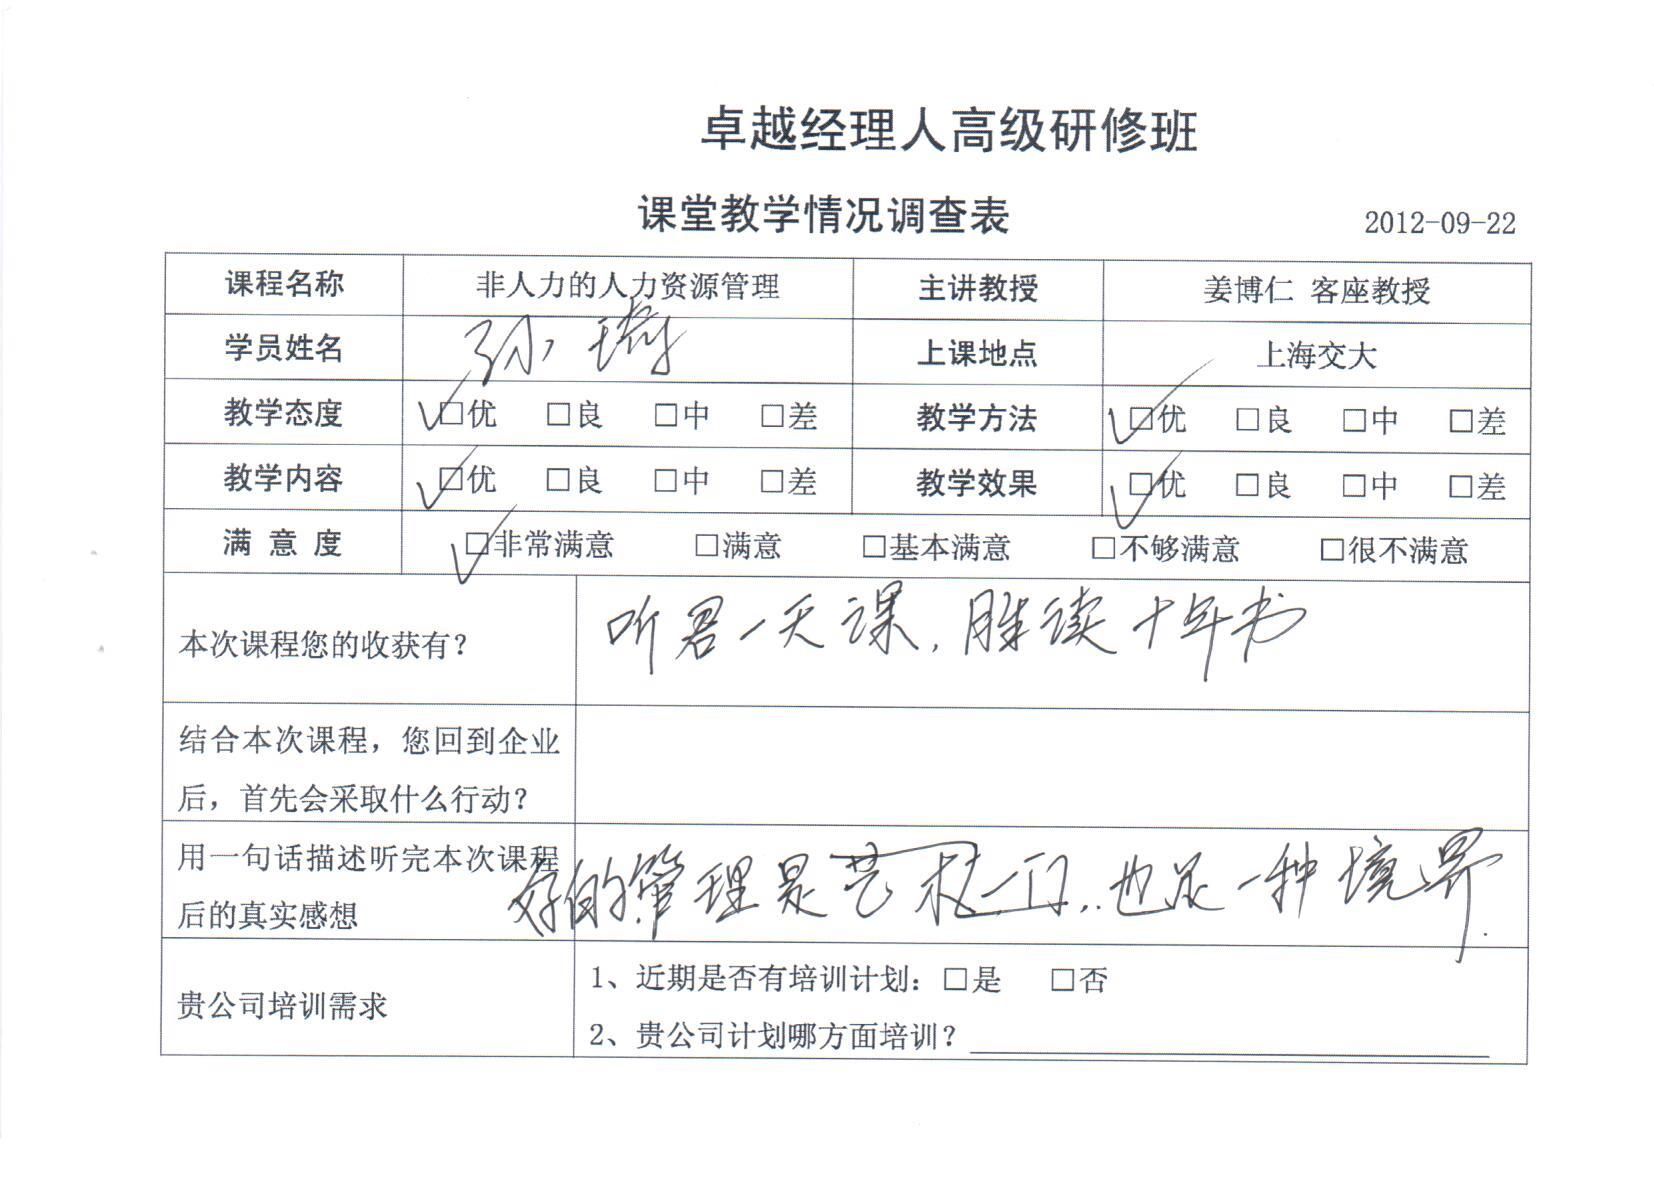 卓越经理人高级研修班
课堂教学情况调查表 2012-09-22
课程名称 非人力的人力资源管理 主讲教授 姜博仁 客座教授
学员姓名 孙 上课地点 上海交大
教学态度 ✓□优 □良 □中 □差 教学方法 ✓□优 □良 □中 □差
教学内容 ✓□优 □良 □中 □差 教学效果 ✓□优 □良 □中 □差
满 意 度 ✓□非常满意 □满意 □基本满意 □不够满意 □很不满意
本次课程您的收获有? 听君一天课,胜读十年书
结合本次课程,您回到企业
后,首先会采取什么行动?
用一句话描述听完本次课程
后的真实感想
好的管理是艺术一门,也是一种境界.
贵公司培训需求
1、近期是否有培训计划:□是 □否
2、贵公司计划哪方面培训?